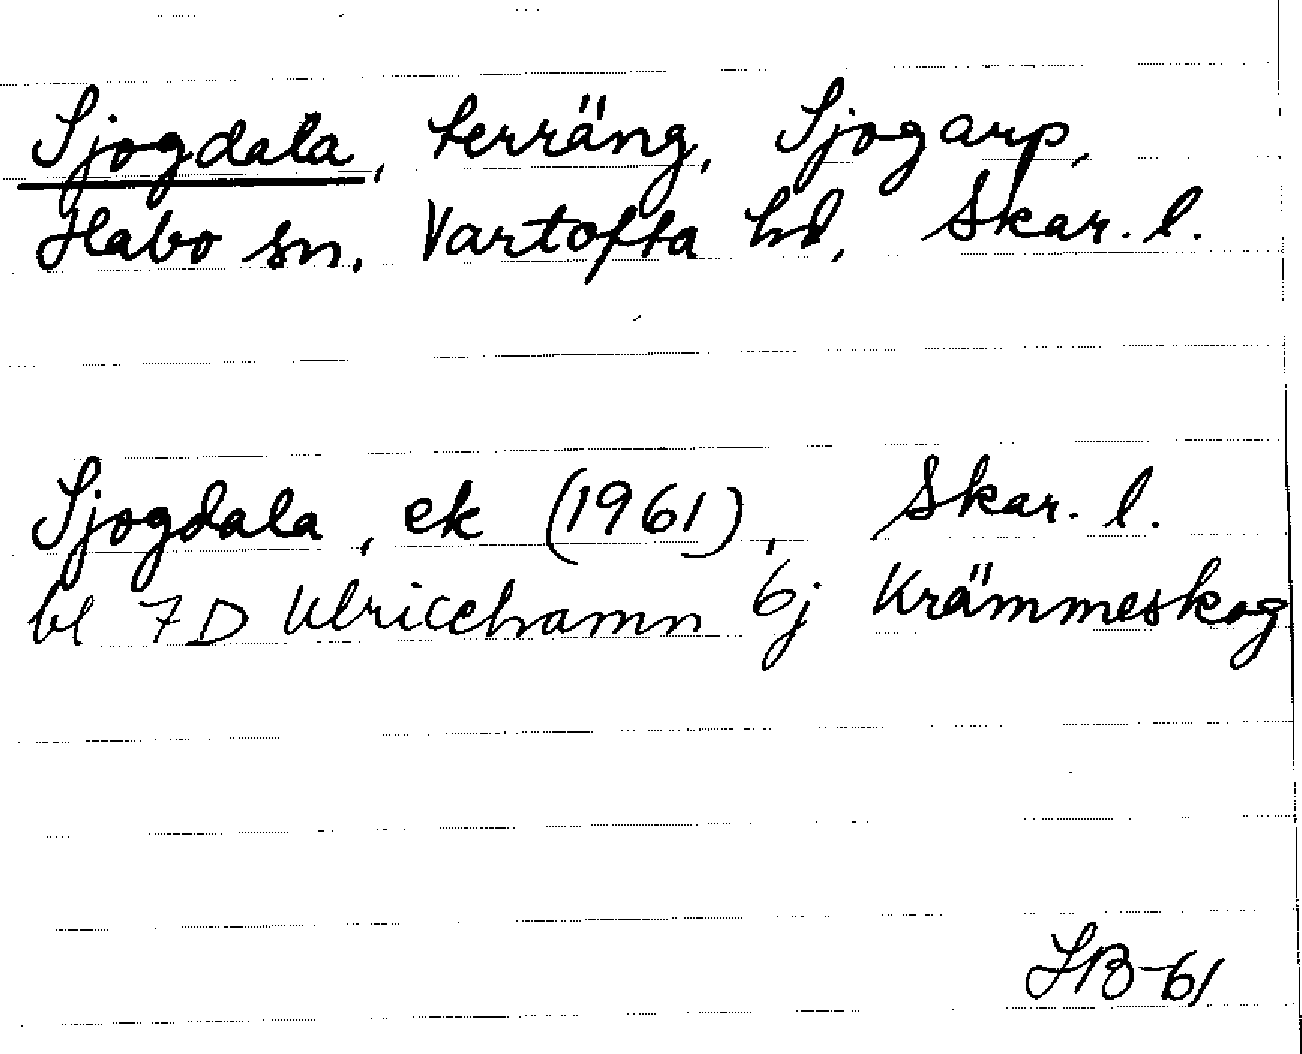 Sjogdala, terräng, Sjogarp,
Habo sn. Vartofta hd, Skar. l.
Sjogdala, ek (1961), Skar. l.
bl 7D Ulricehamn 6j Krämmeskog
SB-61